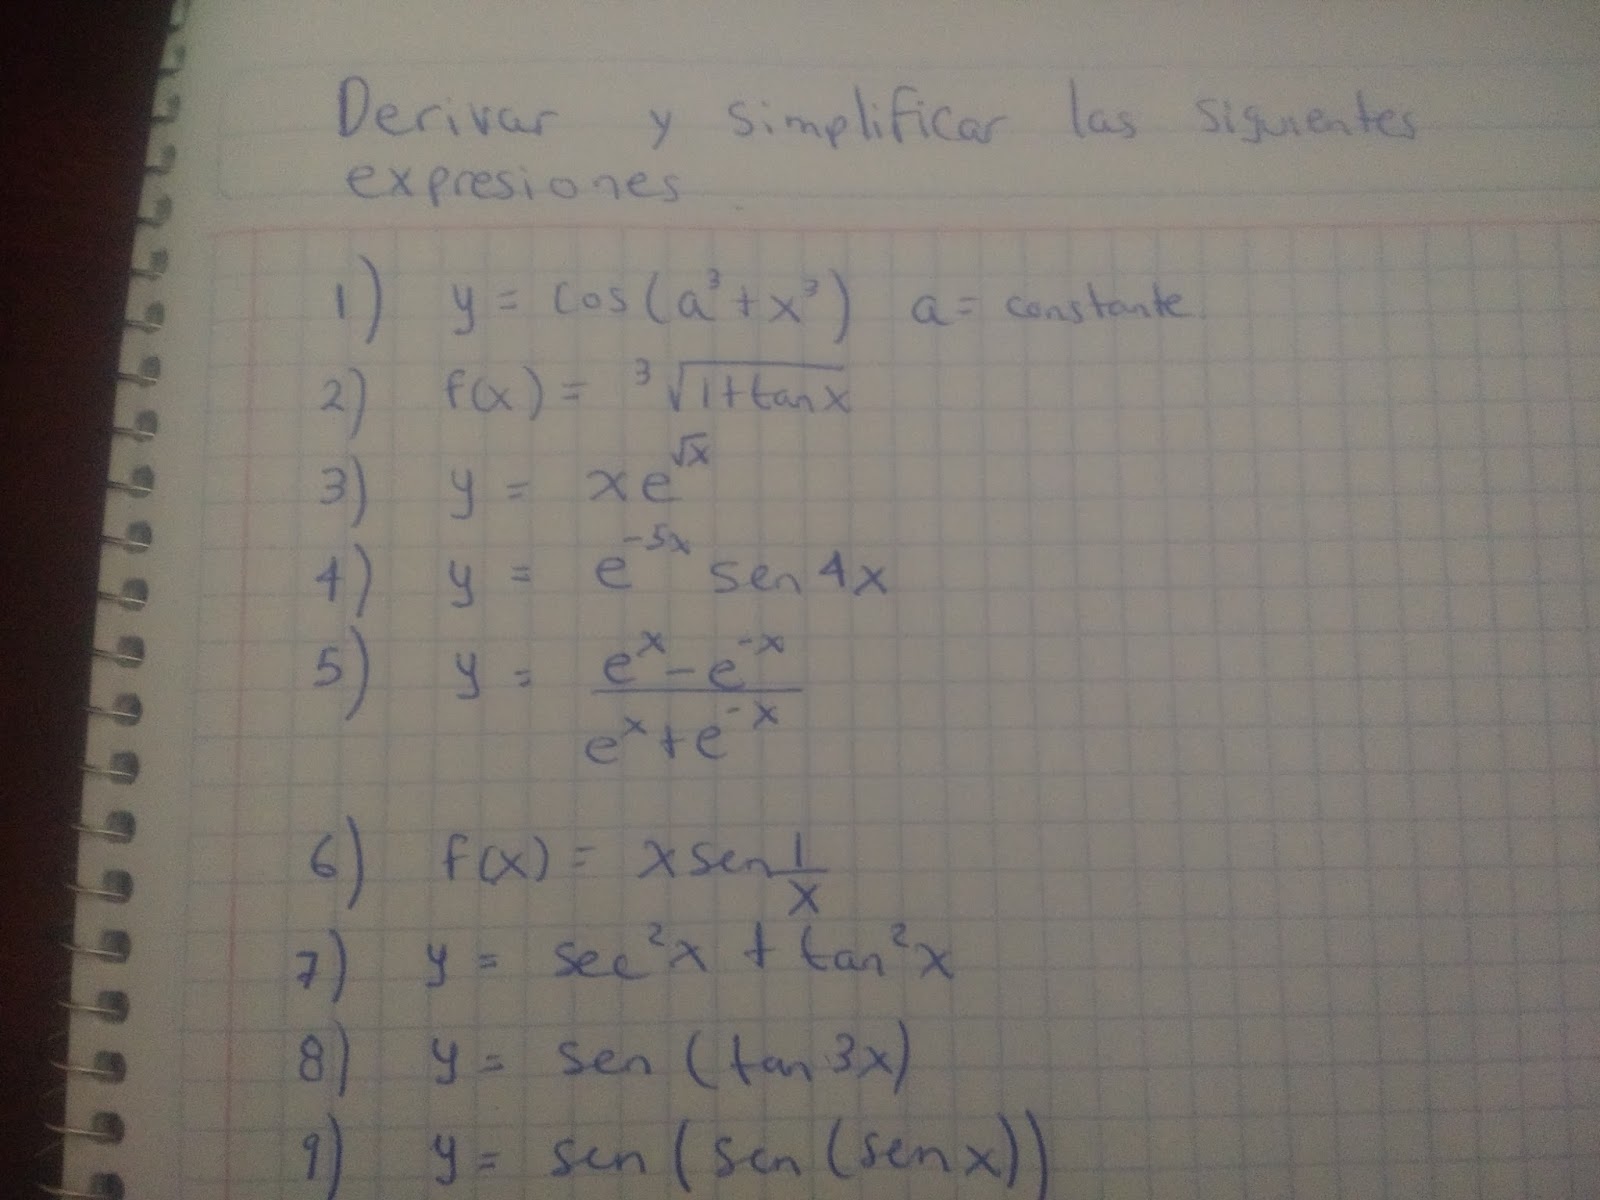 Derivar y simplificar las siguientes
expresiones
1) y = cos(a³+x³) a = constante.
2) f(x) = ³√1+tanx
3) y = xe^√x
4) y = e^-5x sen 4x
5) y = e^x - e^-x
e^x + e^-x
6) f(x) = x sen 1/x
7) y = sec²x + tan²x
8) y = sen (tan 3x)
9) y = sen (sen (sen x))